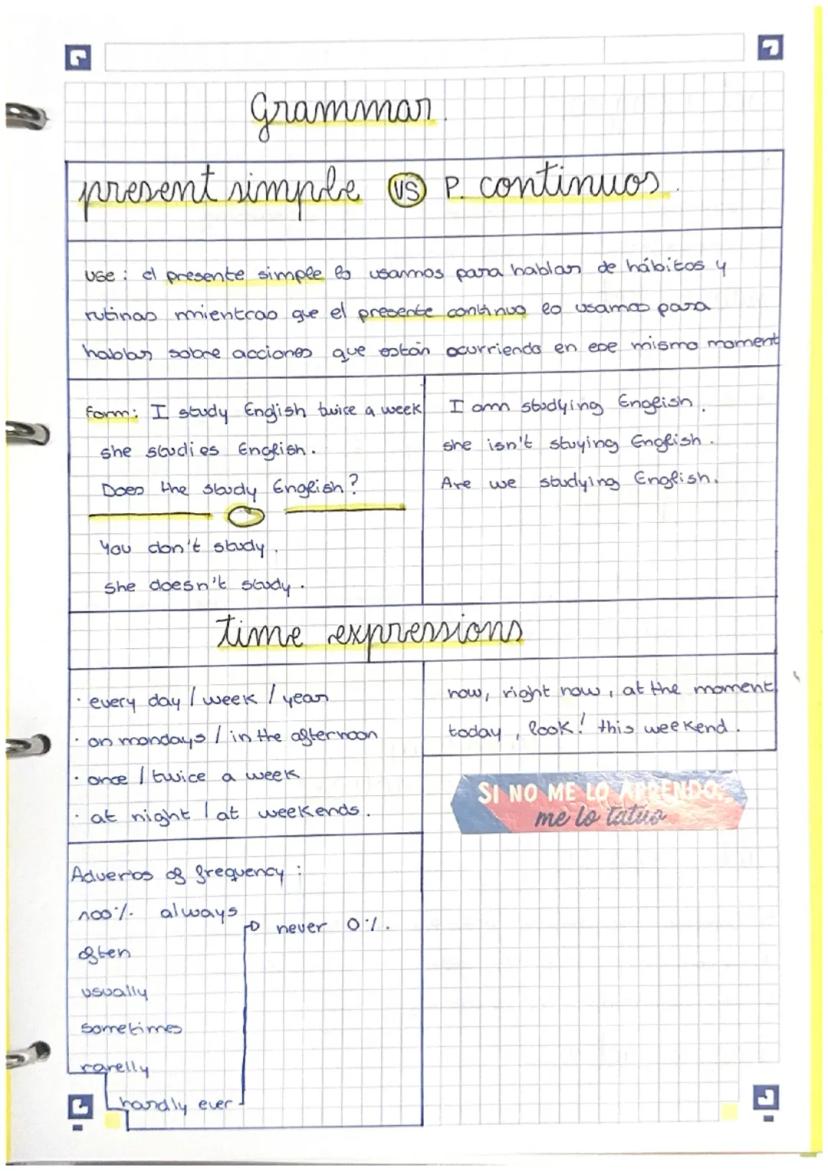 Grammar.
present simple VS P. continuos.
Use: el presente simple lo usamos para hablar de hábitos y
rutinas mientras que el presente continuo lo usamos para
hablar sobre acciones que están ocurriendo en ese mismo moment
form: I study English twice a week
she studies English.
Does the study English?
You don't study.
she doesn't study.
I am studying English.
she isn't stuying English.
Are we studying English.
time expressions
· every day / week / year
· on mondays / in the afternoon
· once / twice a week
· at night / at weekends.
now, right now, at the moment
today, look! this weekend.
SI NO ME LO APRENDO,
me lo tatúo
Adverbs of frequency:
100% always
never 0%.
often
usually
sometimes
rarelly
hardly ever